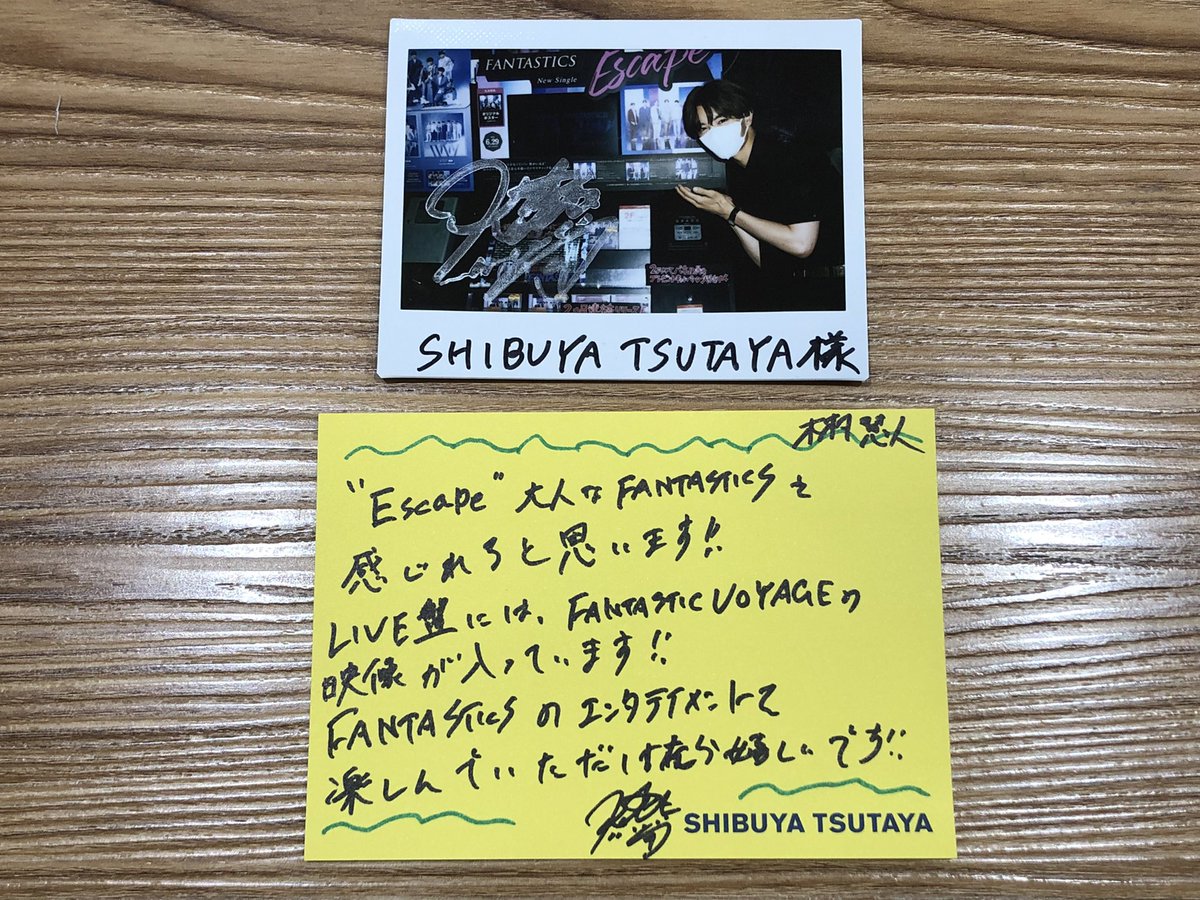 FANTASTICS
New Single
Escape
オリジナル
ポスター
6.29
SHIBUYA TSUTAYA様
木村慧人
"Escape" 大人なFANTASTICSを
感じれると思います!!
LIVE盤には、FANTASTIC VOYAGEの
映像が入っています!!
FANTASTICSのエンタテイメントで
楽しんでいただけたら嬉しいです!!
SHIBUYA TSUTAYA